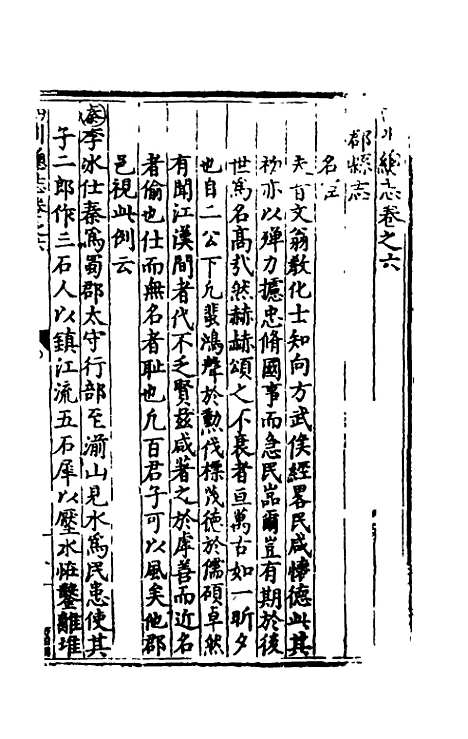 川緫志卷之六
郡縣志
名宦
夫昔文翁敎化士知向方武侯經畧民咸懷德此其
初亦以殫力攄忠脩國事而急民嵒爾豈有期於後
世爲名髙㢤然赫赫頌之不衰者亘萬古如一昕夕
也自二公下凢蜚鴻聲於勲伐摽茂徳於儒碩卓然
有聞江漢間者代不乏賢兹咸著之於虖善而近名
者偷也仕而無名者耻也凢百君子可以風矣他郡
邑視此例云
秦李冰仕秦爲蜀郡太守行部至湔山見水爲民患使其
子二郎作三石人以鎮江流五石犀以壓水恠鑿離堆
川緫志卷之六